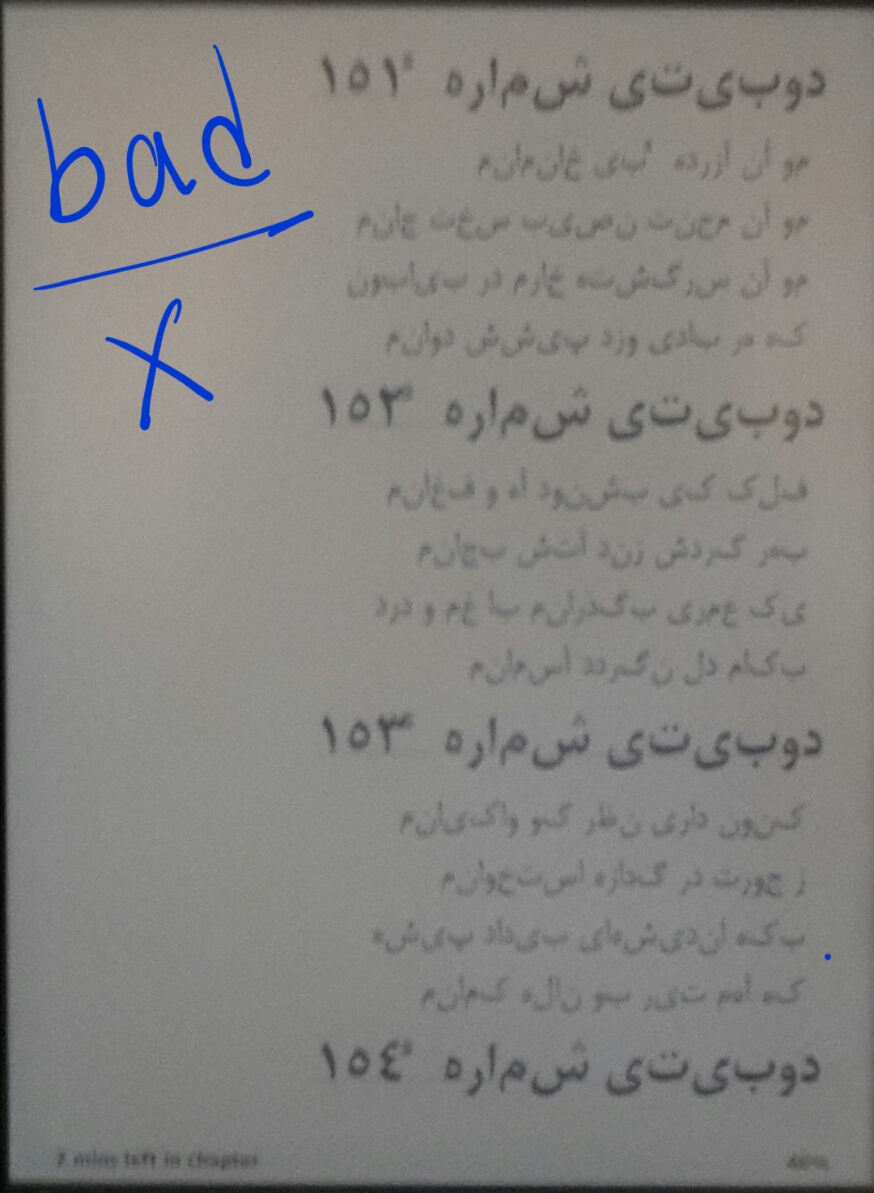 bad
X
دوبیتی شماره ۱۵۱
مو آن آزرده بی خانمانم
مو آن محنت نصیب سخت جانم
مو آن سرگشته خارم در بیابون
که هر بادی وزد پیشش دوانم
دوبیتی شماره ۱۵۲
فلک کی بشنود آه و فغانم
بهر گردش زند آتش بجانم
یک عمری بگذرانم با غم و درد
بکام دل نگردد آسمانم
دوبیتی شماره ۱۵۳
کنون داری نظر کو واکیانم
ز جورت در گدازه استخوانم
بکه اندیشهای بیداد پیشه
که آهم تیر بو ناله کمانم
دوبیتی شماره ۱۵٤
7 mins left in chapter